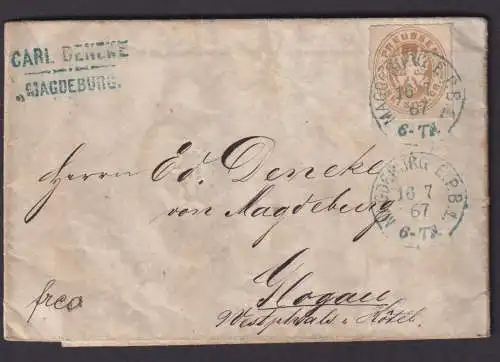 CARL DENEKE
MAGDEBURG.
PREUSSEN
MAGDEBURG E.P.B. I
16 7
67
6-7N.
MAGDEBURG E.P.B. I
16 7
67
6-7N.
Herrn Ed. Deneke
von Magdeburg
Glogau
frco
Westphals Hôtel.